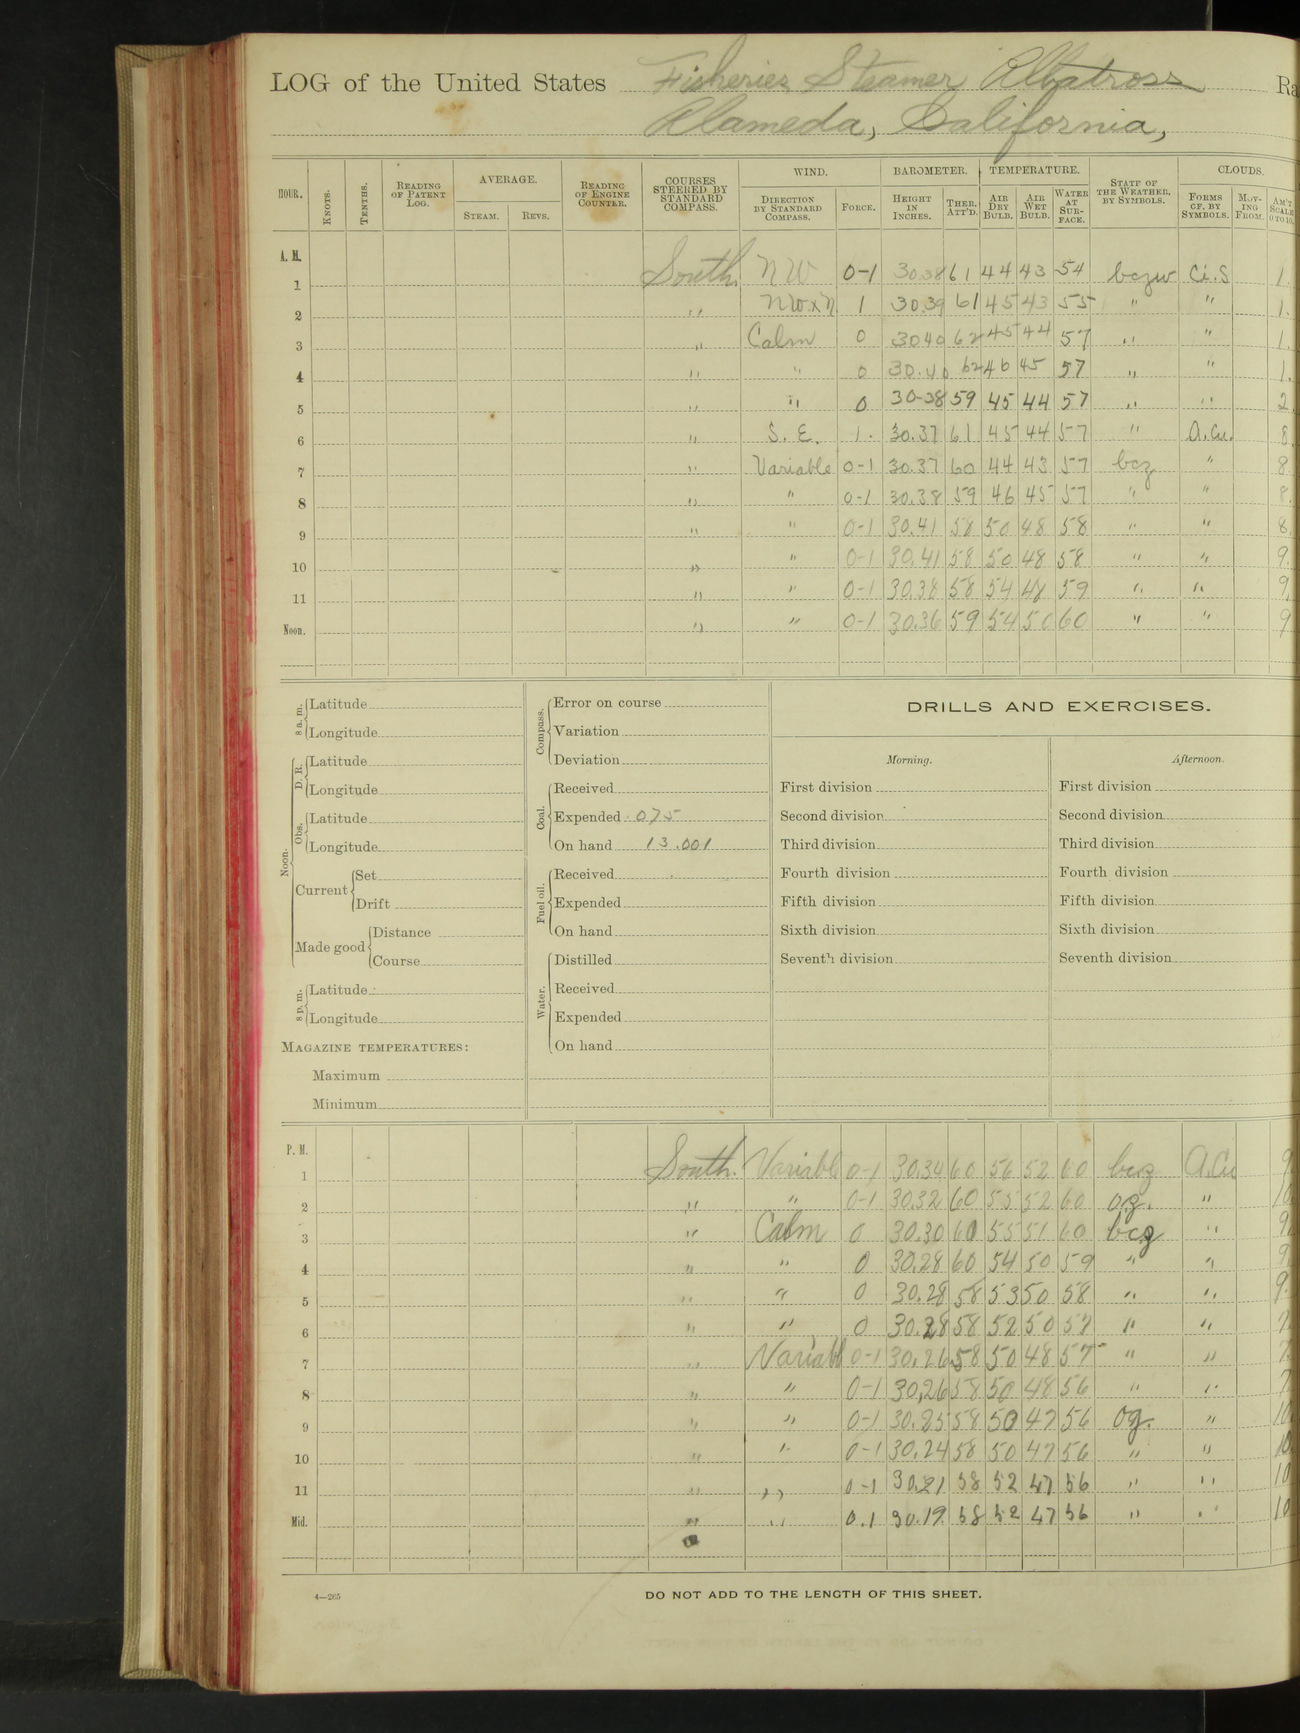 LOG of the United States Fisheries Steamer Albatross Ra
Alameda, California,
HOUR. KNOTS. TENTHS. READING OF PATENT LOG. AVERAGE. STEAM. REVS. READING OF ENGINE COUNTER. COURSES STEERED BY STANDARD COMPASS. WIND. DIRECTION BY STANDARD COMPASS. FORCE. BAROMETER. HEIGHT IN INCHES. THER. ATT'D. TEMPERATURE. AIR DRY BULB. AIR WET BULB. WATER AT SURFACE. STATE OF THE WEATHER, BY SYMBOLS. CLOUDS. FORMS OF, BY SYMBOLS. MOVING FROM. AM'T SCALE 0 TO 10.
A. M.
1 South NW 0-1 30.38 61 44 43 54 bczw Ci.S 1.
2 " NW.x N. 1 30.39 61 45 43 55 " " 1.
3 " Calm 0 3040 62 45 44 57 " " 1.
4 " " 0 30.40 62 46 45 57 " " 1.
5 " " 0 30-38 59 45 44 57 " " 2
6 " S. E. 1. 30.37 61 45 44 57 " A.Cu. 8.
7 " Variable 0-1 30.37 60 44 43 57 bcz " 8
8 " " 0-1 30.38 59 46 45 57 " " 8.
9 " " 0-1 30.41 58 50 48 58 " " 8.
10 " " 0-1 30.41 58 50 48 58 " " 9.
11 " " 0-1 30.38 58 54 48 59 " " 9.
Noon. " " 0-1 30.36 59 54 50 60 " " 9
DRILLS AND EXERCISES.
Morning. Afternoon.
8 a. m. Latitude
Longitude
Noon. D. R. Latitude
Longitude
Obs. Latitude
Longitude
Current Set
Drift
Made good Distance
Course
8 p. m. Latitude
Longitude
MAGAZINE TEMPERATURES:
Maximum
Minimum
Compass. Error on course
Variation
Deviation
Coal. Received
Expended .075
On hand 13.001
Fuel oil. Received
Expended
On hand
Water. Distilled
Received
Expended
On hand
First division First division
Second division Second division
Third division Third division
Fourth division Fourth division
Fifth division Fifth division
Sixth division Sixth division
Seventh division Seventh division
P. M.
1 South. Variabl 0-1 30.34 60 56 52 60 bcz A.Cu 9
2 " " 0-1 30.32 60 55 52 60 oz. " 10
3 " Calm 0 30.30 60 55 51 60 bcz " 9
4 " " 0 30.28 60 54 50 59 " " 9
5 " " 0 30.28 58 53 50 58 " " 9.
6 " " 0 30.28 58 52 50 57 " "
7 " Variabl 0-1 30.26 58 50 48 57 " " 7
8 " " 0-1 30,26 58 50 48 56 " " 7
9 " " 0-1 30.25 58 50 47 56 og. " 10
10 " " 0-1 30.24 58 50 47 56 " " 10
11 " " 0-1 30.21 58 52 47 56 " " 10
Mid. " " 0.1 30.19 58 52 47 56 " " 10
4—265 DO NOT ADD TO THE LENGTH OF THIS SHEET.